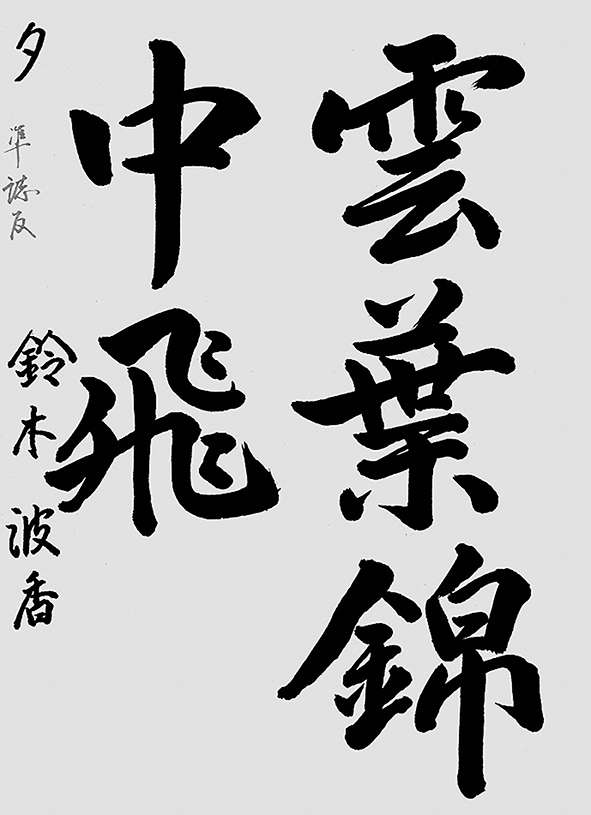 雲葉錦
中飛
夕 準誌友 鈴木波香